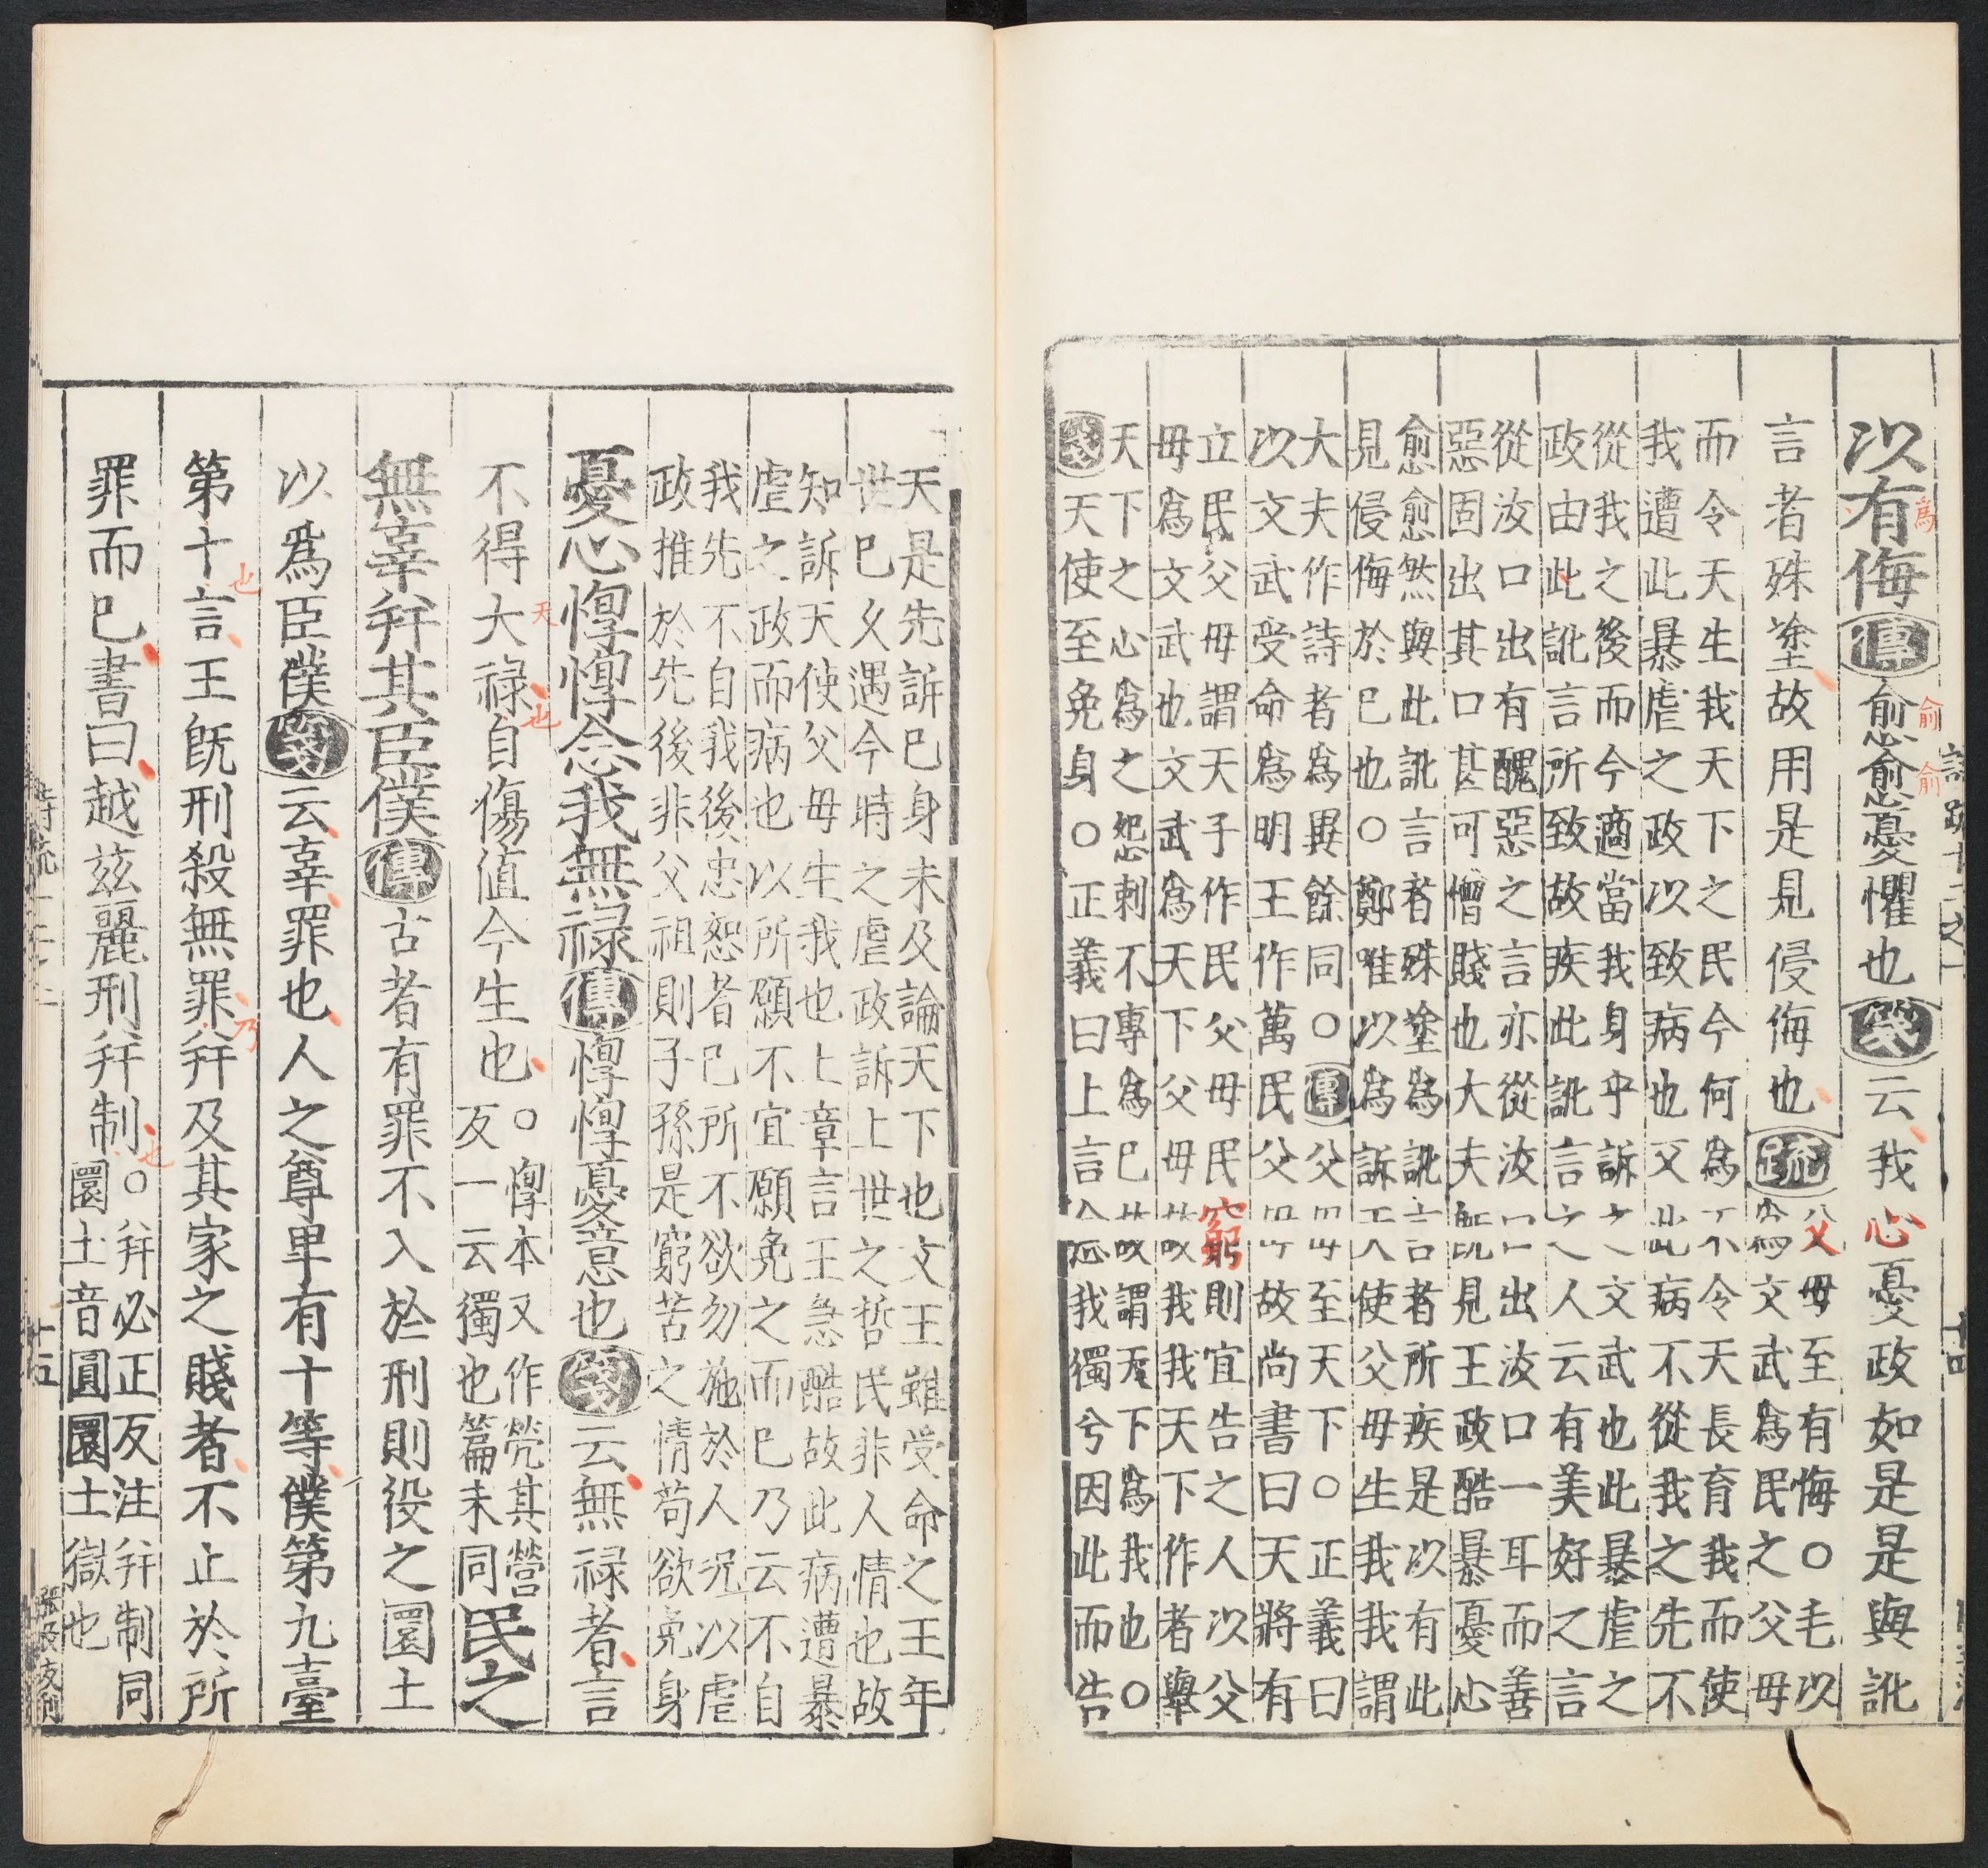 以有侮傳愈愈憂懼也箋云我心憂政如是是與訛
言者殊塗故用是見侵侮也疏父母至有侮○毛以
爲文武爲民之父母
而令天生我天下之民今何爲不令天長育我而使
我遭此暴虐之政以致病也又此病不從我之先不
從我之後而今適當我身乎訴之文武也此暴虐之
政由此訛言所致故疾此訛言之人云有美好之言
從汝口出有醜惡之言亦從汝口出汝口一耳而善
惡固出其口甚可憎賤也大夫旣見王政酷暴憂心
愈愈然與此訛言者殊塗爲訛言者所疾是以有此
見侵侮於巳也○鄭唯以爲訴天使父母生我我謂
大夫作詩者爲異餘同○傳父母至天下○正義曰
以文武受命爲明王作萬民父母故尚書曰天將有
立民父母謂天子作民父母民窮則宜告之人以父
母爲文武也文武爲天下父母故我我天下作者舉
天下之心爲之怨刺不專爲巳故謂天下爲我也○
箋天使至免身○正義曰上言念我獨兮因此而告
天是先訴巳身未及論天下也文王雖受命之王年
世巳久遇今時之虐政訴上世之哲民非人情也故
知訴天使父母生我也上章言王急酷故此病遭暴
虐之政而病也以所願不宜願免之而巳乃云不自
我先不自我後忠恕者己所不欲勿施於人况以虐
政推於先後非父祖則子孫是窮苦之情苟欲免身
憂心惸惸念我無禄傳惸惸憂意也箋云無禄者言
不得大禄自傷值今生也○惸本又作煢其營
反一云獨也篇末同民之
無辜并其臣僕傳古者有罪不入於刑則役之圜土
以爲臣僕箋云辜罪也人之尊卑有十等僕第九臺
第十言王旣刑殺無罪并及其家之賤者不止於所
罪而巳書曰越兹麗刑并制○并必正反注并制同
圜土音圓圜土獄也
爲
俞俞
天
也
也
乃
也